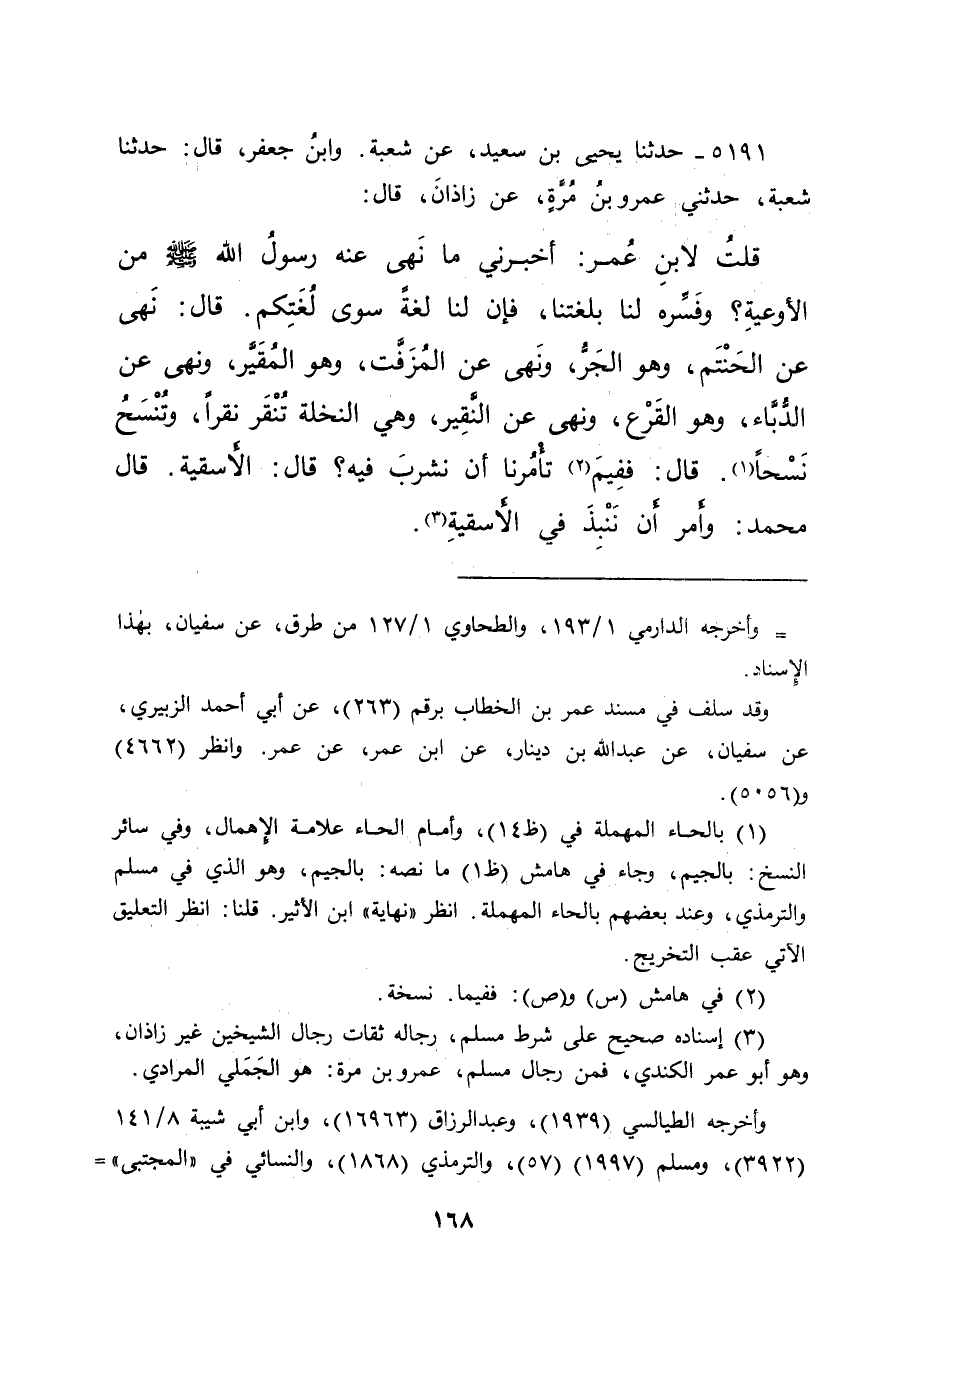 ٥١٩١- حدثنا يحيى بن سعيد، عن شعبة. وابنُ جعفر، قال: حدثنا
شعبة، حدثني عمرو بنُ مُرَّةٍ، عن زاذانَ، قال:
قلتُ لابنِ عُمر: أخبرني ما نَهى عنه رسولُ الله ﷺ من
الأوعيةِ؟ وفَسِّره لنا بلغتنا، فإن لنا لغةً سوى لُغَتِكم. قال: نَهى
عن الحَنْتَم، وهو الجَرُّ، ونَهى عن المُزَفَّت، وهو المُقَيَّر، ونهى عن
الدُّبَّاء، وهو القَرْع، ونهى عن النَّقِير، وهي النخلة تُنْقَر نقراً، وتُنْسَحُ
نَسْحاً(١). قال: ففِيمَ(٢) تأْمُرنا أن نشربَ فيه؟ قال: الأَسقية. قال
محمد: وأَمر أَن نَنْبِذَ في الأَسقيةِ(٣).
= وأخرجه الدارمي ١٩٣/١، والطحاوي ١٢٧/١ من طرق، عن سفيان، بهٰذا
الإِسناد.
وقد سلف في مسند عمر بن الخطاب برقم (٢٦٣)، عن أبي أحمد الزبيري،
عن سفيان، عن عبدالله بن دينار، عن ابن عمر، عن عمر. وانظر (٤٦٦٢)
و(٥٠٥٦).
(١) بالحاء المهملة في (ظ١٤)، وأمام الحاء علامة الإِهمال، وفي سائر
النسخ: بالجيم، وجاء في هامش (ظ١) ما نصه: بالجيم، وهو الذي في مسلم
والترمذي، وعند بعضهم بالحاء المهملة. انظر «نهاية» ابن الأثير. قلنا: انظر التعليق
الآتي عقب التخريج.
(٢) في هامش (س) و(ص): ففيما. نسخة.
(٣) إسناده صحيح على شرط مسلم، رجاله ثقات رجال الشيخين غير زاذان،
وهو أبو عمر الكندي، فمن رجال مسلم، عمرو بن مرة: هو الجَمَلي المرادي.
وأخرجه الطيالسي (١٩٣٩)، وعبدالرزاق (١٦٩٦٣)، وابن أبي شيبة ١٤١/٨
(٣٩٢٢)، ومسلم (١٩٩٧) (٥٧)، والترمذي (١٨٦٨)، والنسائي في «المجتبى» =
١٦٨